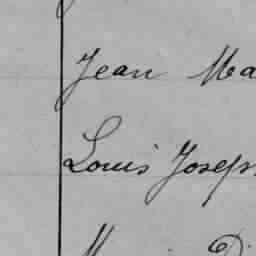 Jean Ma
Louis Josep